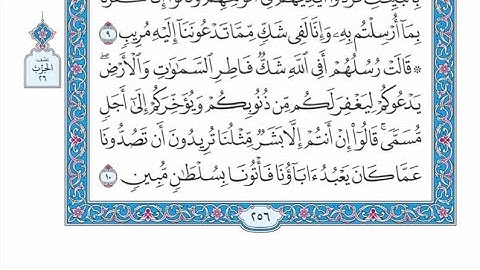 بِمَآ أُرْسِلْتُم بِهِۦ وَإِنَّا لَفِى شَكٍّ مِّمَّا تَدْعُونَنَآ إِلَيْهِ مُرِيبٍ ٩
۞ قَالَتْ رُسُلُهُمْ أَفِى ٱللَّهِ شَكٌّ فَاطِرِ ٱلسَّمَـٰوَٰتِ وَٱلْأَرْضِ ۖ
نصف
الحزب
٢٦
يَدْعُوكُمْ لِيَغْفِرَ لَكُم مِّن ذُنُوبِكُمْ وَيُؤَخِّرَكُمْ إِلَىٰٓ أَجَلٍ
مُّسَمًّى ۚ قَالُوٓا۟ إِنْ أَنتُمْ إِلَّا بَشَرٌ مِّثْلُنَا تُرِيدُونَ أَن تَصُدُّونَا
عَمَّا كَانَ يَعْبُدُ ءَابَآؤُنَا فَأْتُونَا بِسُلْطَـٰنٍ مُّبِينٍ ١٠
٢٥٦